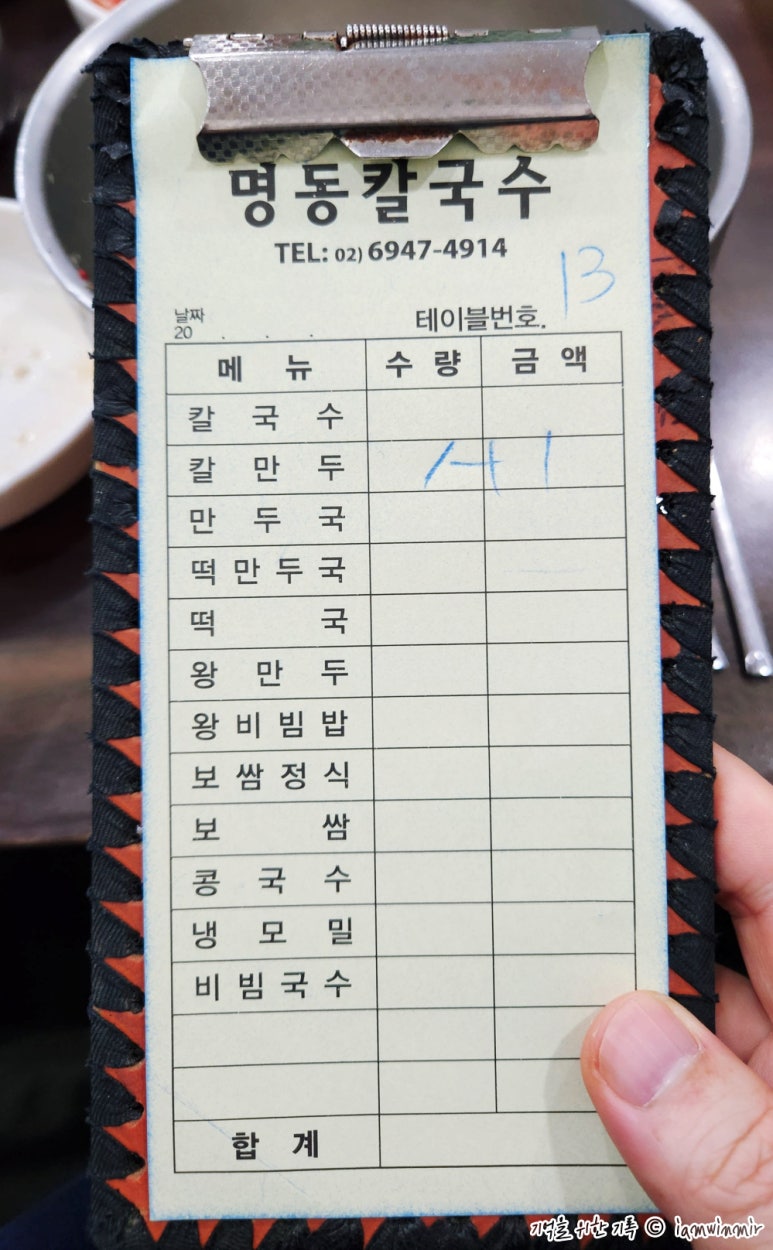 명동칼국수
TEL: 02) 6947-4914
13
날짜
20 . . . 테이블번호.
메 뉴 수 량 금 액
칼 국 수
칼 만 두
만 두 국
떡 만 두 국
떡 국
왕 만 두
왕 비 빔 밥
보 쌈 정 식
보 쌈
콩 국 수
냉 모 밀
비 빔 국 수
합 계
기억을 위한 기록 © iamwinmir